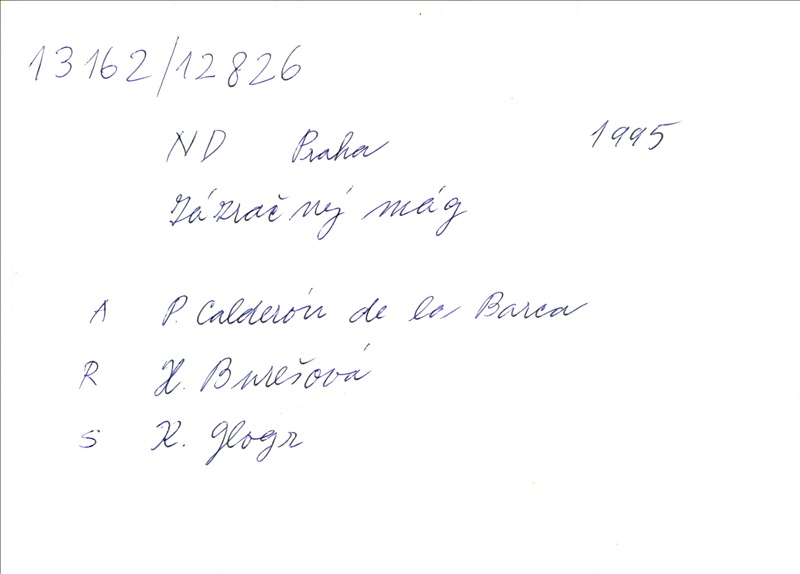 13162/12826
ND Praha 1995
Zázračný mág
A P. Calderón de la Barca
R H. Burešová
S K. Glogr